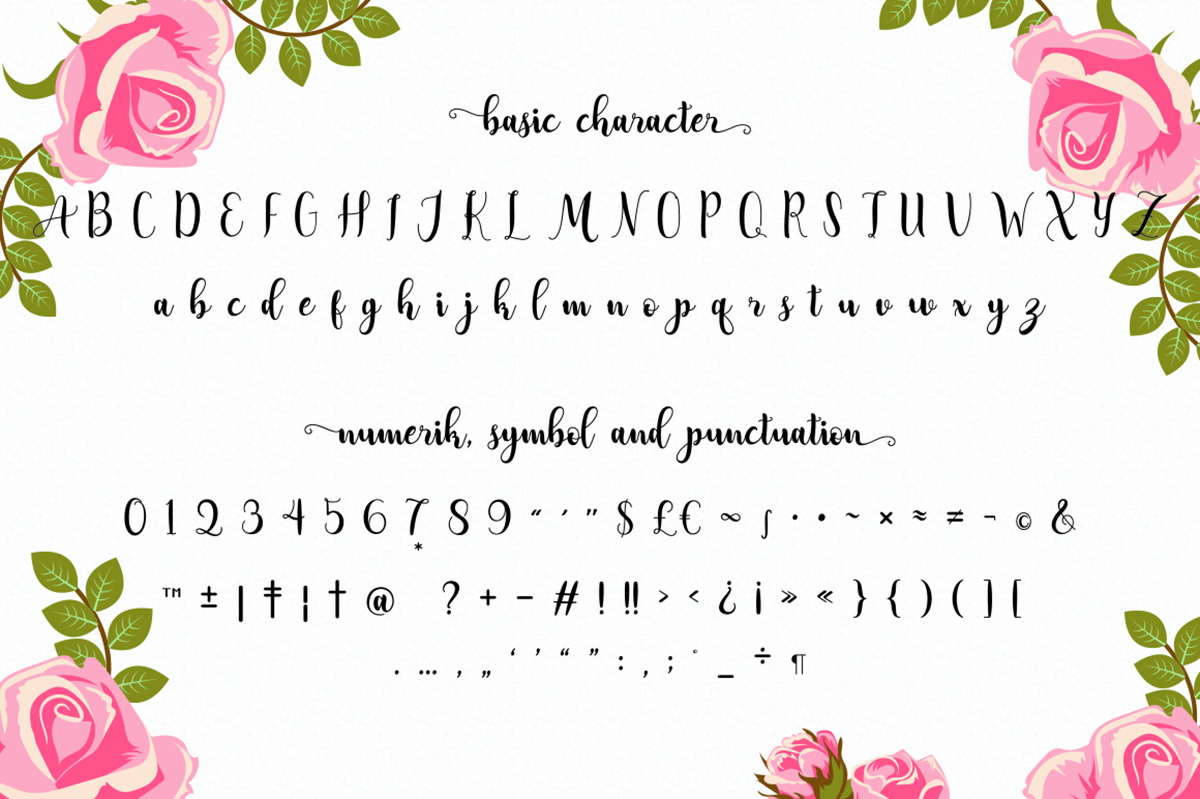 basic character
A B C D E F G H I J K L M N O P Q R S T U V W X Y Z
a b c d e f g h i j k l m n o p q r s t u v w x y z
numerik, symbol and punctuation
0 1 2 3 4 5 6 7 8 9 “ ′ ″ $ £ € ∞ ∫ · • ~ × ≈ ≠ ¬ © &
*
™ ± | ‡ ¦ † @ ? + − # ! !! › ‹ ¿ ¡ » « } { ) ( ] [
. … , „ ‘ ’ “ ” : , ; ° _ ÷ ¶